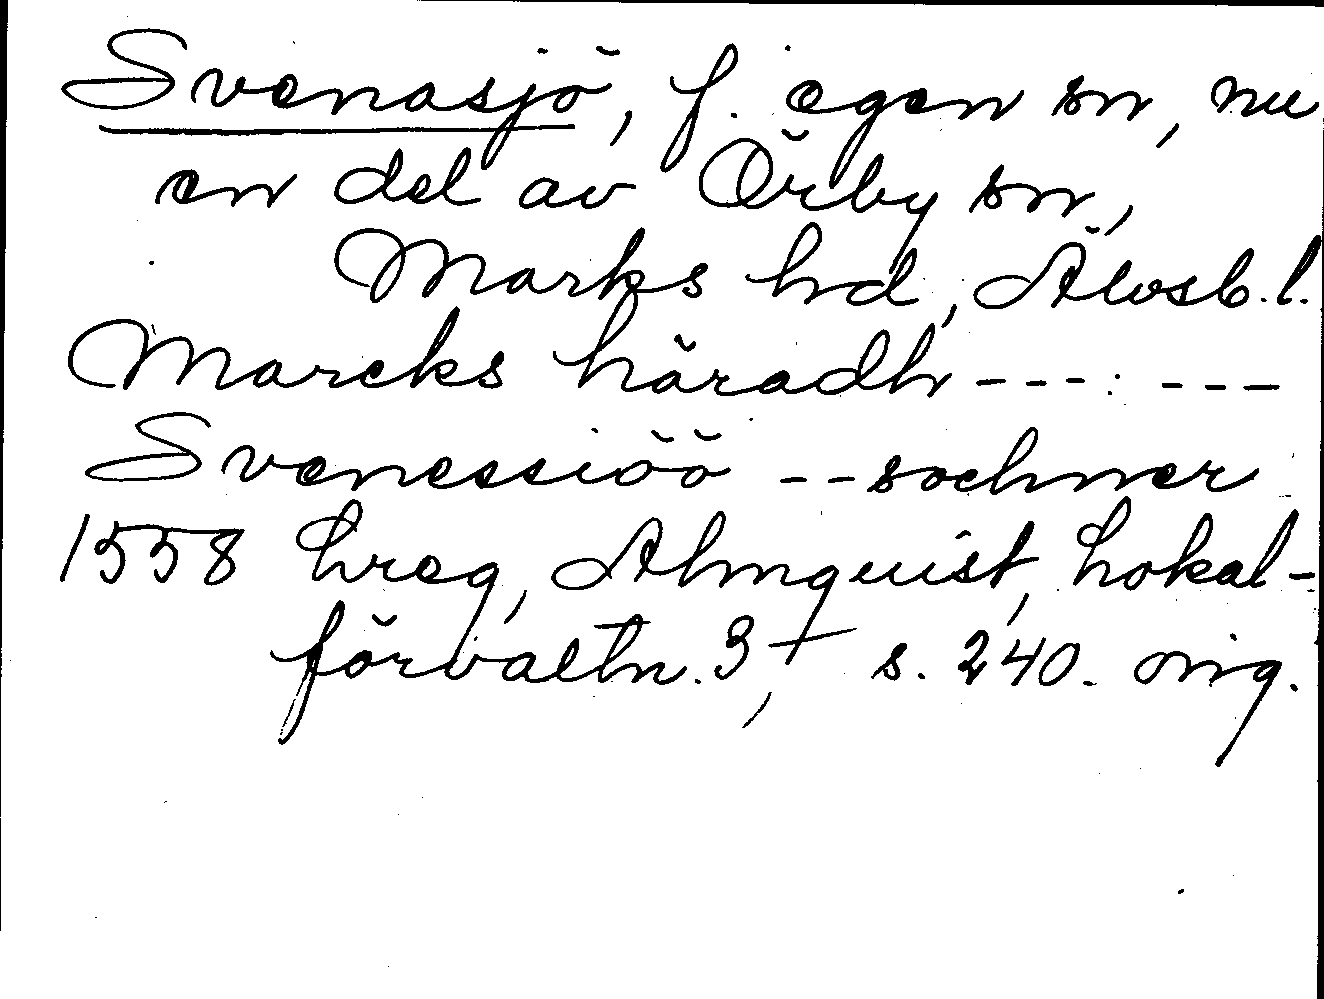 Svenasjö, f. egen sn, nu
en del av Örby sn,
Marks hd, Älvsb. l.
Marcks häradh --- : ---
Svenessiöö -- sochner
1558 hreg, Almquist, Lokal-
förvaltn. 3, s. 240. orig.